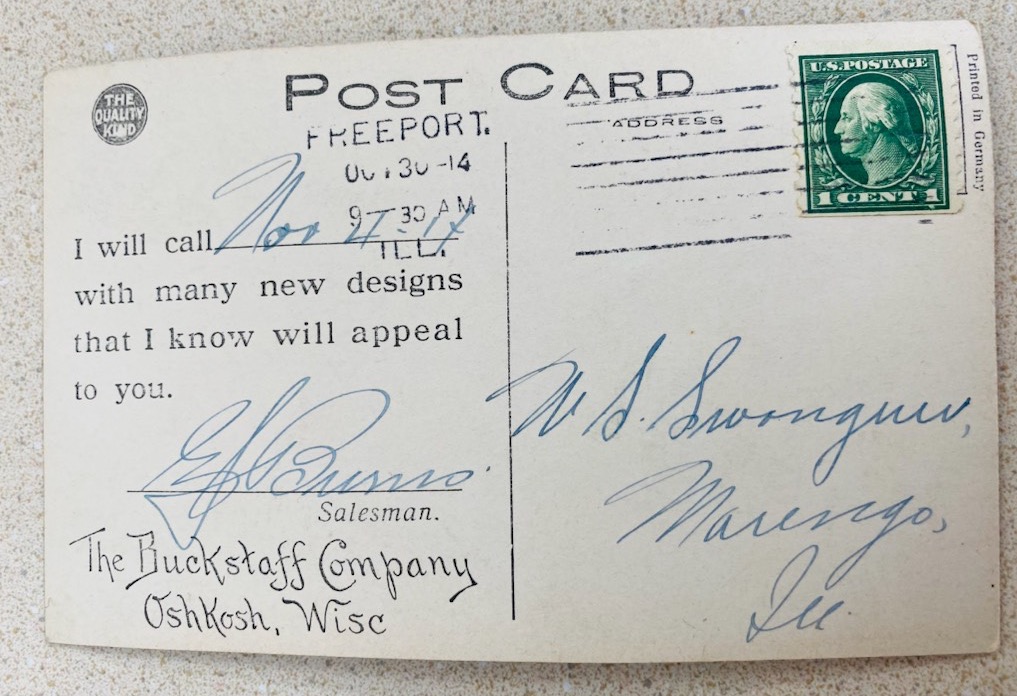 THE
QUALITY
KIND
POST CARD
ADDRESS
U.S. POSTAGE
1 CENT 1
Printed in Germany
FREEPORT.
OCT 30 -14
9 — 30 AM
ILL.
I will call Nov 4 - 14
with many new designs
that I know will appeal
to you.
Burns
Salesman.
The Buckstaff Company
Oshkosh, Wisc
W S. Swonguer,
Marengo,
Ill.